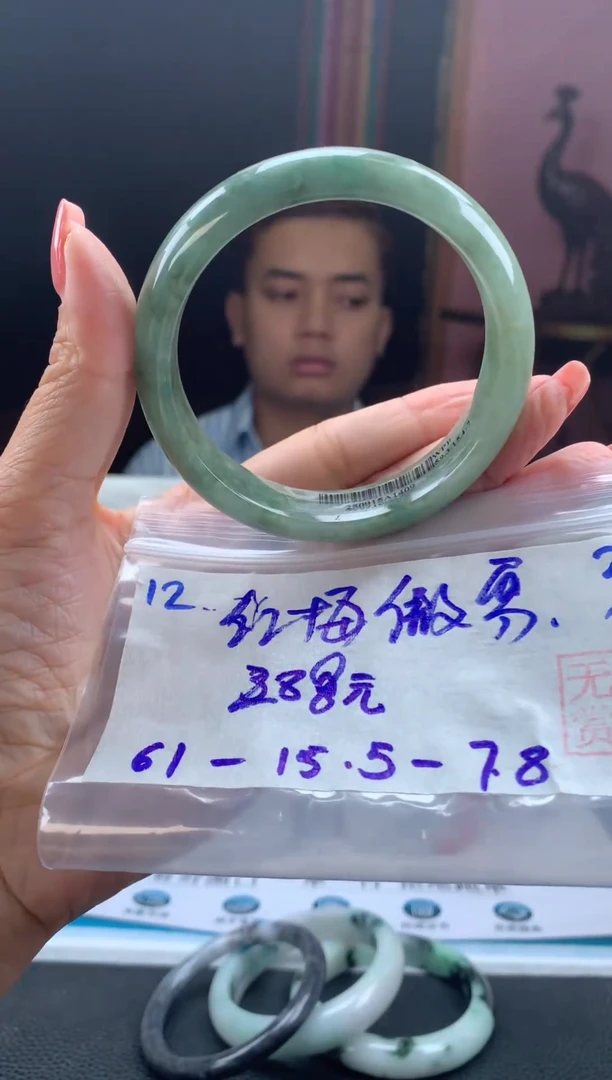 12. 红梅傲雪.
388元
61-15.5-7.8
无
赏